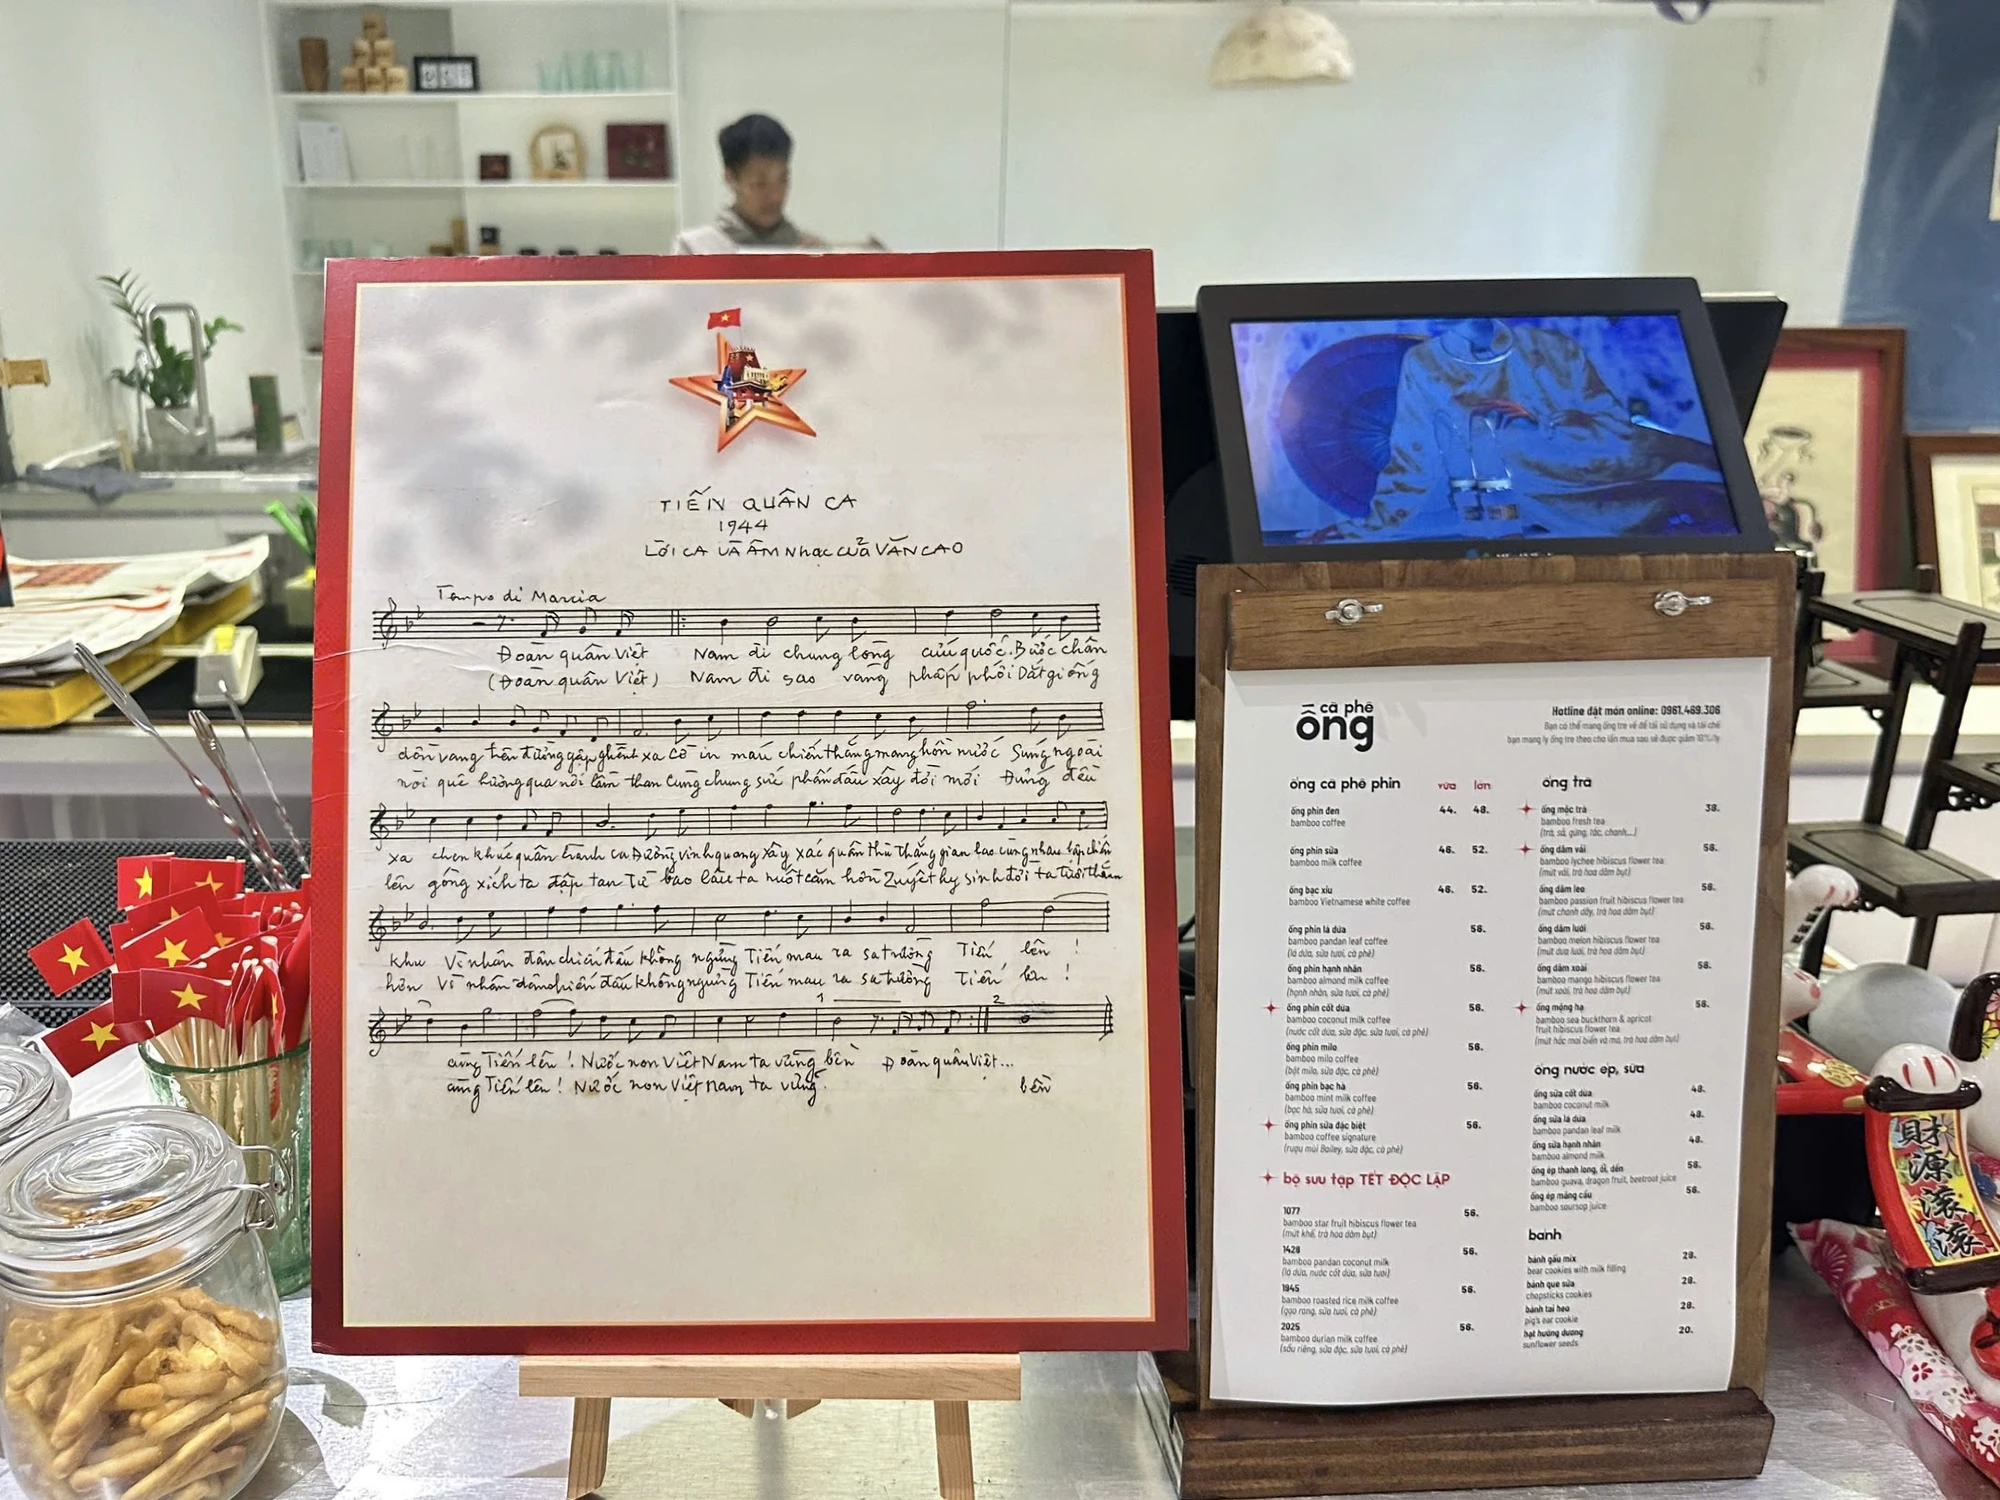 TIẾN QUÂN CA
1944
LỜI CA VÀ ÂM NHẠC CỦA VĂN CAO
Tempo di Marcia
Đoàn quân Việt Nam đi chung lòng cứu quốc. Bước chân
(Đoàn quân Việt) Nam đi sao vàng phấp phới Dắt giống
dồn vang trên đường gập ghềnh xa Cờ in máu chiến thắng mang hồn nước Súng ngoài
nòi quê hương qua nơi lầm than Cùng chung sức phấn đấu xây đời mới Đứng đều
xa chen khúc quân hành ca Đường vinh quang xây xác quân thù Thắng gian lao cùng nhau lập chiến
lên gông xích ta đập tan Từ bao lâu ta nuốt căm hờn Quyết hy sinh đời ta tươi thắm
khu Vì nhân dân chiến đấu không ngừng Tiến mau ra sa trường Tiến lên !
hơn Vì nhân dân chiến đấu không ngừng Tiến mau ra sa trường Tiến lên !
1 2
cùng Tiến lên ! Nước non Việt Nam ta vững bền Đoàn quân Việt...
cùng Tiến lên ! Nước non Việt Nam ta vững bền
cà phê
ống
Hotline đặt món online: 0961.469.306
Bạn có thể mang ống tre về để tái sử dụng và tái chế
bạn mang ly ống tre theo cho lần mua sau sẽ được giảm 10%/ly
ống cà phê phin vừa lớn
ống phin đen 44. 48.
bamboo coffee
ống phin sữa 46. 52.
bamboo milk coffee
ống bạc xỉu 46. 52.
bamboo Vietnamese white coffee
ống phin lá dứa 56.
bamboo pandan leaf coffee
(lá dứa, sữa tươi, cà phê)
ống phin hạnh nhân 56.
bamboo almond milk coffee
(hạnh nhân, sữa tươi, cà phê)
ống phin cốt dừa 56.
bamboo coconut milk coffee
(nước cốt dừa, sữa đặc, sữa tươi, cà phê)
ống phin milo 56.
bamboo milo coffee
(bột milo, sữa đặc, sữa tươi, cà phê)
ống phin bạc hà 56.
bamboo mint milk coffee
(bạc hà, sữa tươi, cà phê)
ống phin sữa đặc biệt 56.
bamboo coffee signature
(rượu mùi Bailey, sữa đặc, cà phê)
bộ sưu tập TẾT ĐỘC LẬP
1077 56.
bamboo star fruit hibiscus flower tea
(mứt khế, trà hoa dâm bụt)
1428 56.
bamboo pandan coconut milk
(lá dứa, nước cốt dừa, sữa tươi)
1945 56.
bamboo roasted rice milk coffee
(gạo rang, sữa tươi, cà phê)
2025 56.
bamboo durian milk coffee
(sầu riêng, sữa đặc, sữa tươi, cà phê)
ống trà
ống mộc trà 38.
bamboo fresh tea
(trà, sả, gừng, tắc, chanh...)
ống dâm vải 56.
bamboo lychee hibiscus flower tea
(mứt vải, trà hoa dâm bụt)
ống dâm leo 56.
bamboo passion fruit hibiscus flower tea
(mứt chanh dây, trà hoa dâm bụt)
ống dâm lưới 56.
bamboo melon hibiscus flower tea
(mứt dưa lưới, trà hoa dâm bụt)
ống dâm xoài 56.
bamboo mango hibiscus flower tea
(mứt xoài, trà hoa dâm bụt)
ống mộng hạ 56.
bamboo sea buckthorn & apricot
fruit hibiscus flower tea
(mứt hắc mai biển và mơ, trà hoa dâm bụt)
ống nước ép, sữa
ống sữa cốt dừa 48.
bamboo coconut milk
ống sữa lá dứa 48.
bamboo pandan leaf milk
ống sữa hạnh nhân 48.
bamboo almond milk
ống ép thanh long, ổi, dền 56.
bamboo guava, dragon fruit, beetroot juice
ống ép mãng cầu 56.
bamboo soursop juice
bánh
bánh gấu mix 28.
bear cookies with milk filling
bánh que sữa 28.
chopsticks cookies
bánh tai heo 28.
pig's ear cookie
hạt hướng dương 20.
sunflower seeds
財源滾滾